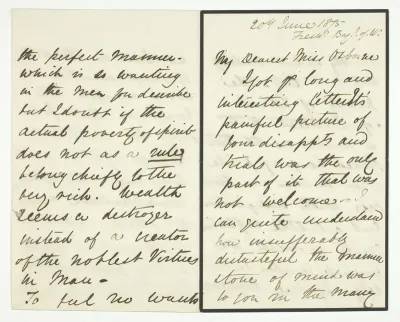 20th June 1875
My Dearest Miss Osborne
I got yr long and
interesting letter Its
painful picture of
your disappts and
trials was the only
part of it that was
not welcome. I
can quite understand
how insufferably
distasteful the manner
tone of mind was
to you in the many
the perfect manner.
which is so wanting
in the men you describe
but I doubt if the
actual poverty of spirit
does not as a rule
belong chiefly to the
very rich. Wealth
seems a destroyer
instead of a creator
of the noblest Virtues
in Man -
To feel no wants